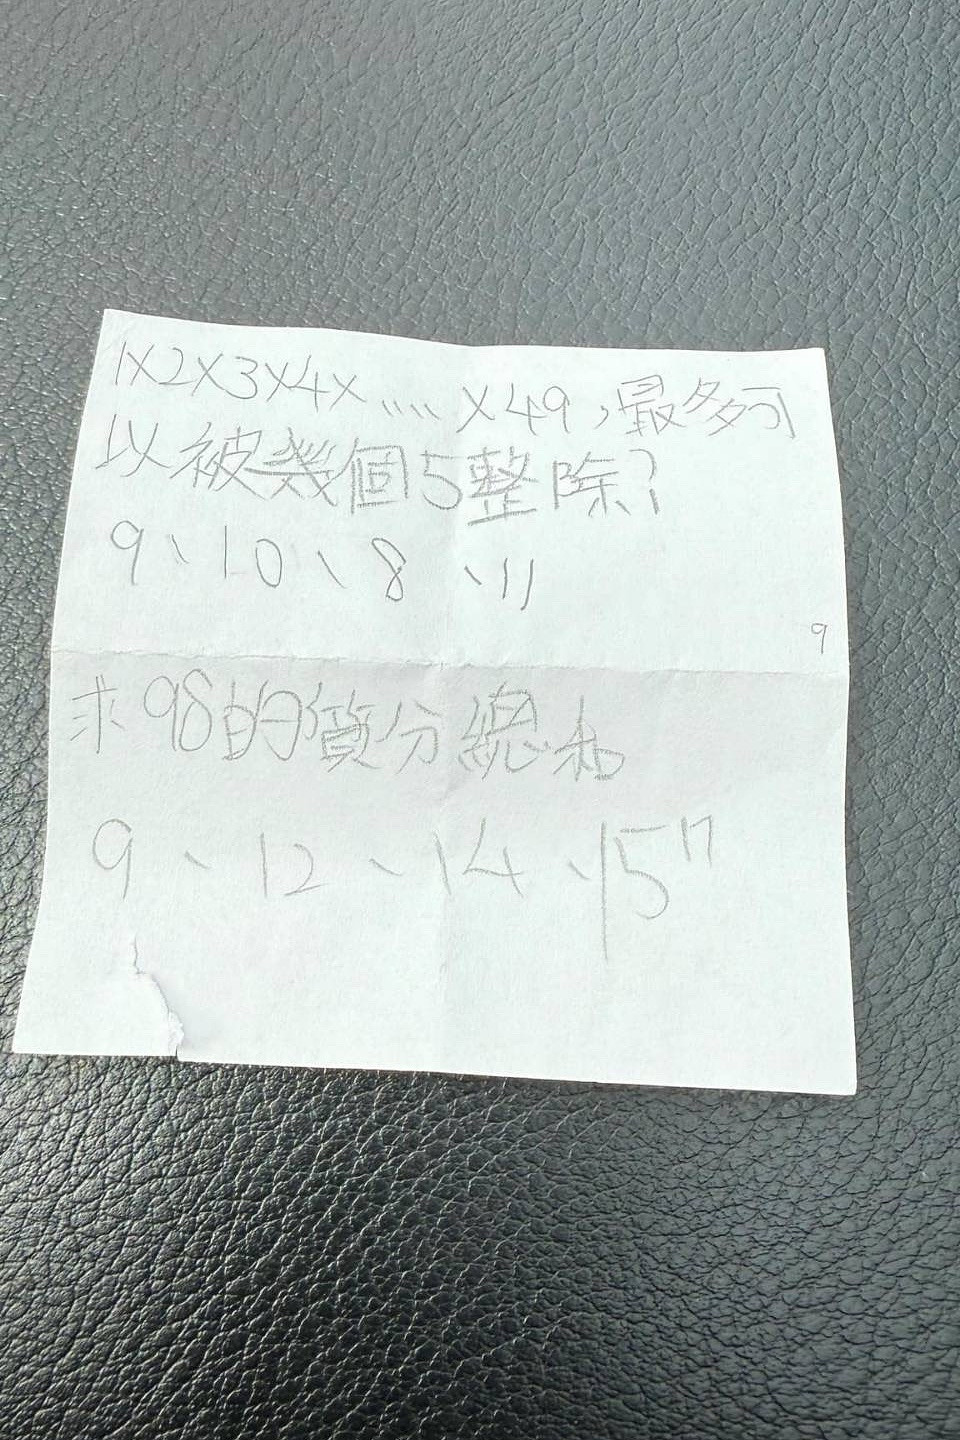 1×2×3×4×......×49,最多可
以被幾個5整除?
9、10、8、11
9
求98的質分總和
9、12、14、15